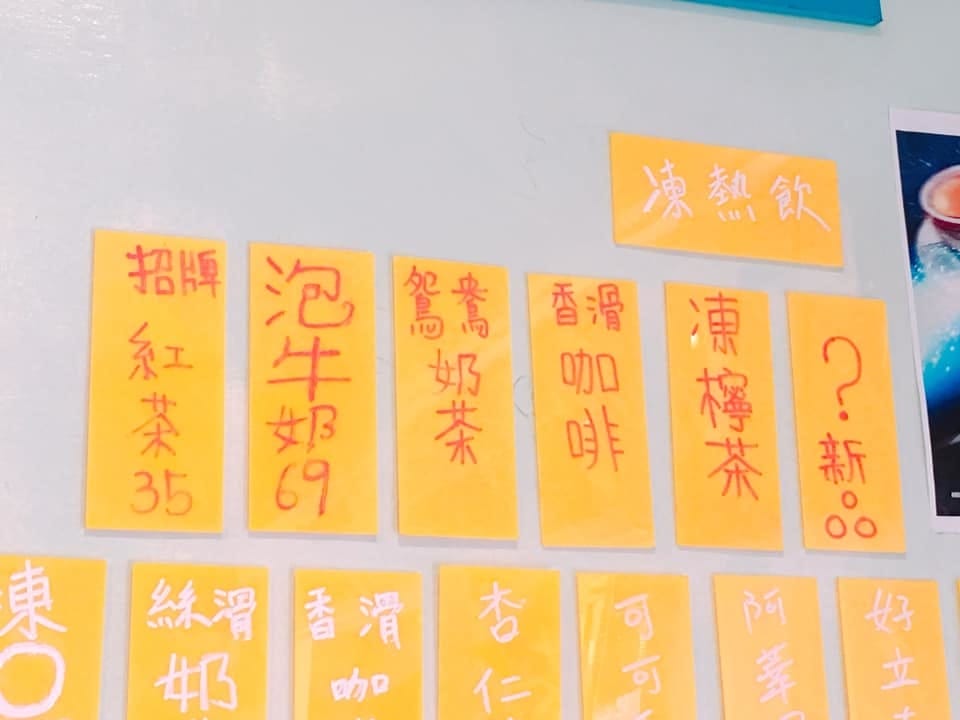 凍熱飲
招牌
紅茶35
泡牛奶69
鴛鴦
奶茶
香滑
咖啡
凍檸茶
?新
凍
絲滑
奶
香滑
咖
杏仁
可可
阿華
好立